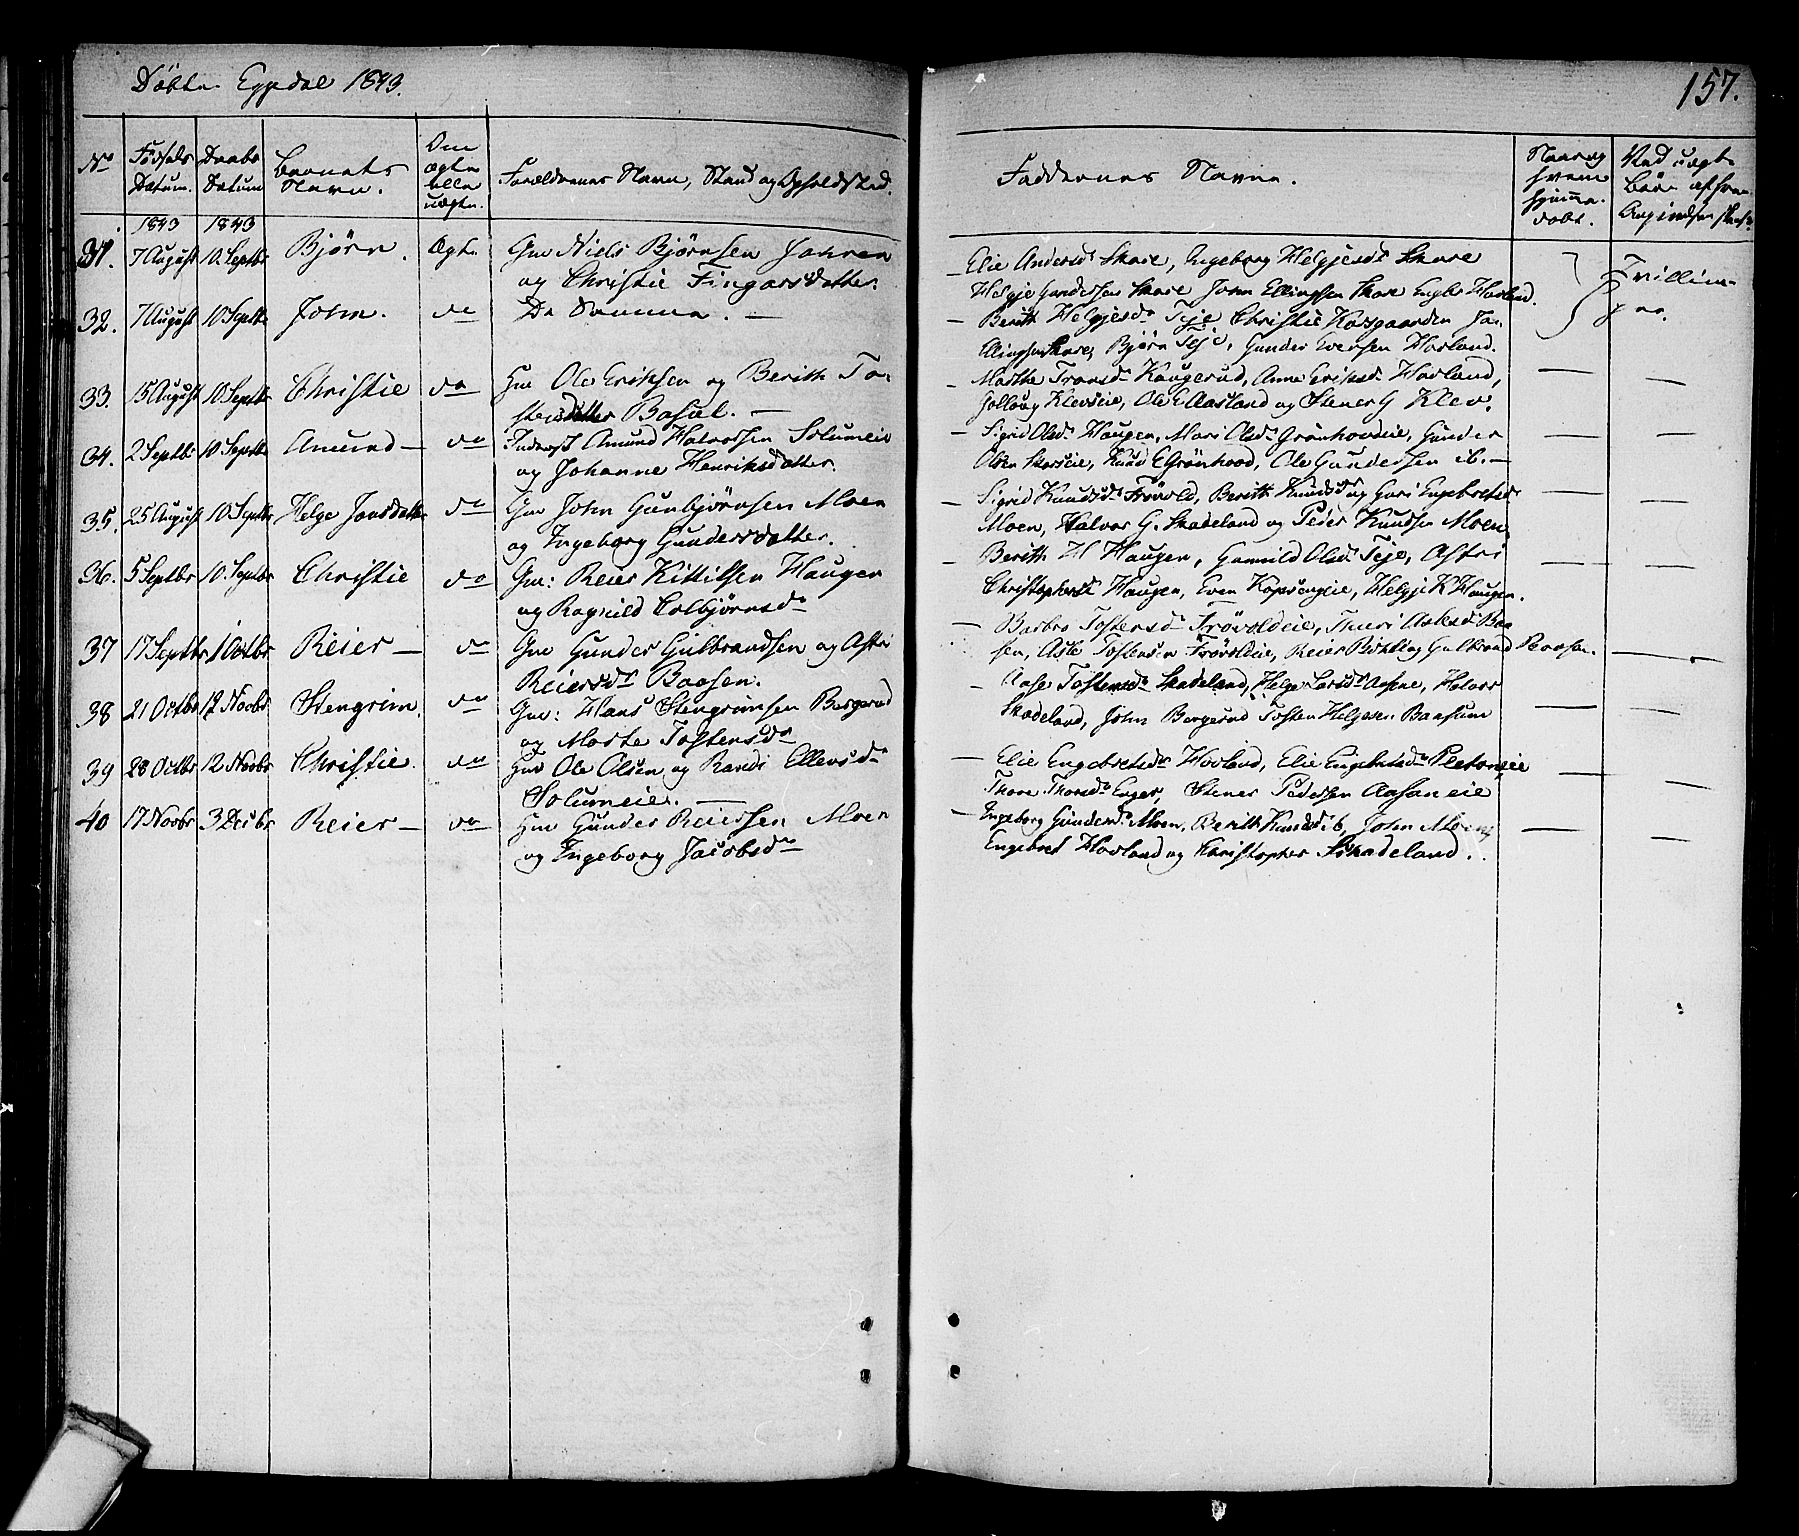 Döbte Eggedal 1843.
157.
No
Födsels Datum.
Daabs Datum
Barnets Navn.
Om ægte eller uægte.
Forældrenes Navn, Stand og Opholdsted.
Faddernes Navne.
Naar og hvem hjemmedöbt.
Ved uægte Börn
1843 1843
31. 7 August 10. Septbr Bjørn. Ægte Gm Niels Bjørnsen Jahren
og Christie Fingarsdatter.
Elie Andersdr Skare, Ingeborg Helgjesdr Skare
Helgje Gundersen Skare John Ellingsen Skare Engbr Hovland.
Tvillinger.
32. 7 August 10 Septbr John. do De Samme. —
— Berith Helgjesdr Teje, Christie Korsgaarden
Ellingsen Skare, Bjørn Teje, Gunder Iversen Hovland.
33. 15 August 10 Septbr Christie do Gm Ole Eriksen og Berith To-
stensdatter Basiel. —
— Marthe Transdr Kaugerud, Anne Eriksdr Hovland,
Golloug Klevseie, Ole E Aasland og Stener G Klev.
34. 2 Septbr 10 Septbr Amund — do Inderst Amund Halvorsen Solumeie
og Johanne Henriksdatter.
— Sigrid Olsdr Haugen, Mari Olsdr Grönhovdeie, Gunder
Olsen Skarseie, Knud E Grönhovd, Ole Gundersen ib. —
35. 25 August 10 Septbr Helge Jonsdatter do Gm John Gunbjörnsen Moen
og Ingeborg Gundersdatter.
— Sigrid Knudsdr Frövold, Berith Knudsdr og Guri Engebretsdr
Moen, Halvor G. Skadeland og Peder Knudsen Moen
36. 5 Septbr 10. Septbr Christie do Gm: Reier Kittilsen Haugen
og Ragnild Colbjörnsdr
— Berith H Haugen, Gunnild Olsdr Teje, Astri
Christophersd Haugen, Even Kopsengeie, Helgje K Haugen.
37 17 Septbr 1 Octbr Reier — do Gm Gunder Gulbrandsen og Astri
Reiersdr Baasen.
— Barbro Tostensdr Frövoldeie, Thuri Aslesdr Baa
sen, Asle Tostensen Frövoldeie, Reier og Gulbrand Baasen.
38 21 Octbr 12 Novbr Stengrim. do Gm: Hans Stengrimsen Bergerud
og Marte Tostensdr
— Aase Tostensdr Skadeland, Helge Larsdr Halvor
Skadeland, John Bergerud Tosten Helgesen Baasum
39 28 Octbr 12 Novbr Christie. do Gm Ole Olsen og Randi Ellevsdr
Solumeie. —
— Elie Engebretsdr Hovland, Elie Engebretsdr
Thore Thorsdr Enger, Stener Pedersen Aasaneie
40 17 Novbr 3 Decbr Reier — do Gm Gunder Reiersen Moen
og Ingeborg Jacobsdr
— Ingeborg Gundersdr Moen, Berith Knudsd ib, John Moen,
Engebret Hovland og Christopher Skadeland.